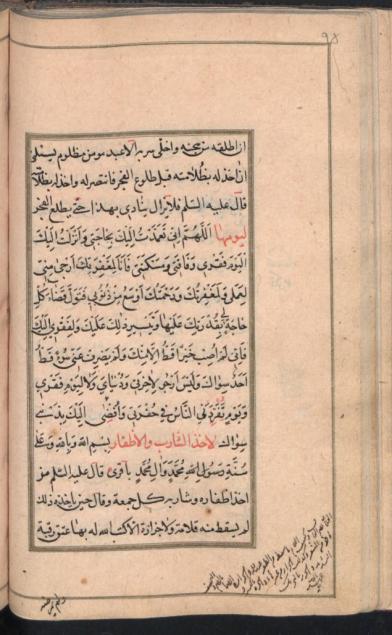 ٩٨
ان اطلقه من سجنه واخلى سربه الا عبد مومن مظلوم يسئلنى
ان اخذ له بظلامته قبل طلوع الفجر فانتصر له واخذ له بظلامته
قال عليه السلم فلا يزال ينادى بهذا حتى يطلع الفجر
ليومها اللهم انى تعمدت اليك بحاجتى وانزلت اليك
اليوم فقرى وفاقتى ومسكنتى فانا لمغفرتك ارجى منى
لعملى ولمغفرتك ورحمتك اوسع من ذنوبى فتول قضاء كل
حاجة لى بقدرتك عليها وتيسير ذلك عليك ولفقرى اليك
فانى لم اصب خيرا قط الا منك ولم يصرف عنى سوء قط
احد سواك وليس ارجى لاخرتى ودنياى ولا ليوم فقرى
ويوم تفردنى الناس فى حفرتى وافضى اليك بذنبى
سواك لاخذ الشارب والاظفار بسم الله وبالله وعلى
سنة رسول الله محمد وال محمد باقرى قال عليه السلم من
اخذ اظفاره وشاربه كل جمعة وقال حين ياخذه ذلك
لم يسقط منه قلامة ولا جزازة الا كتب الله له بها عتق رقبة